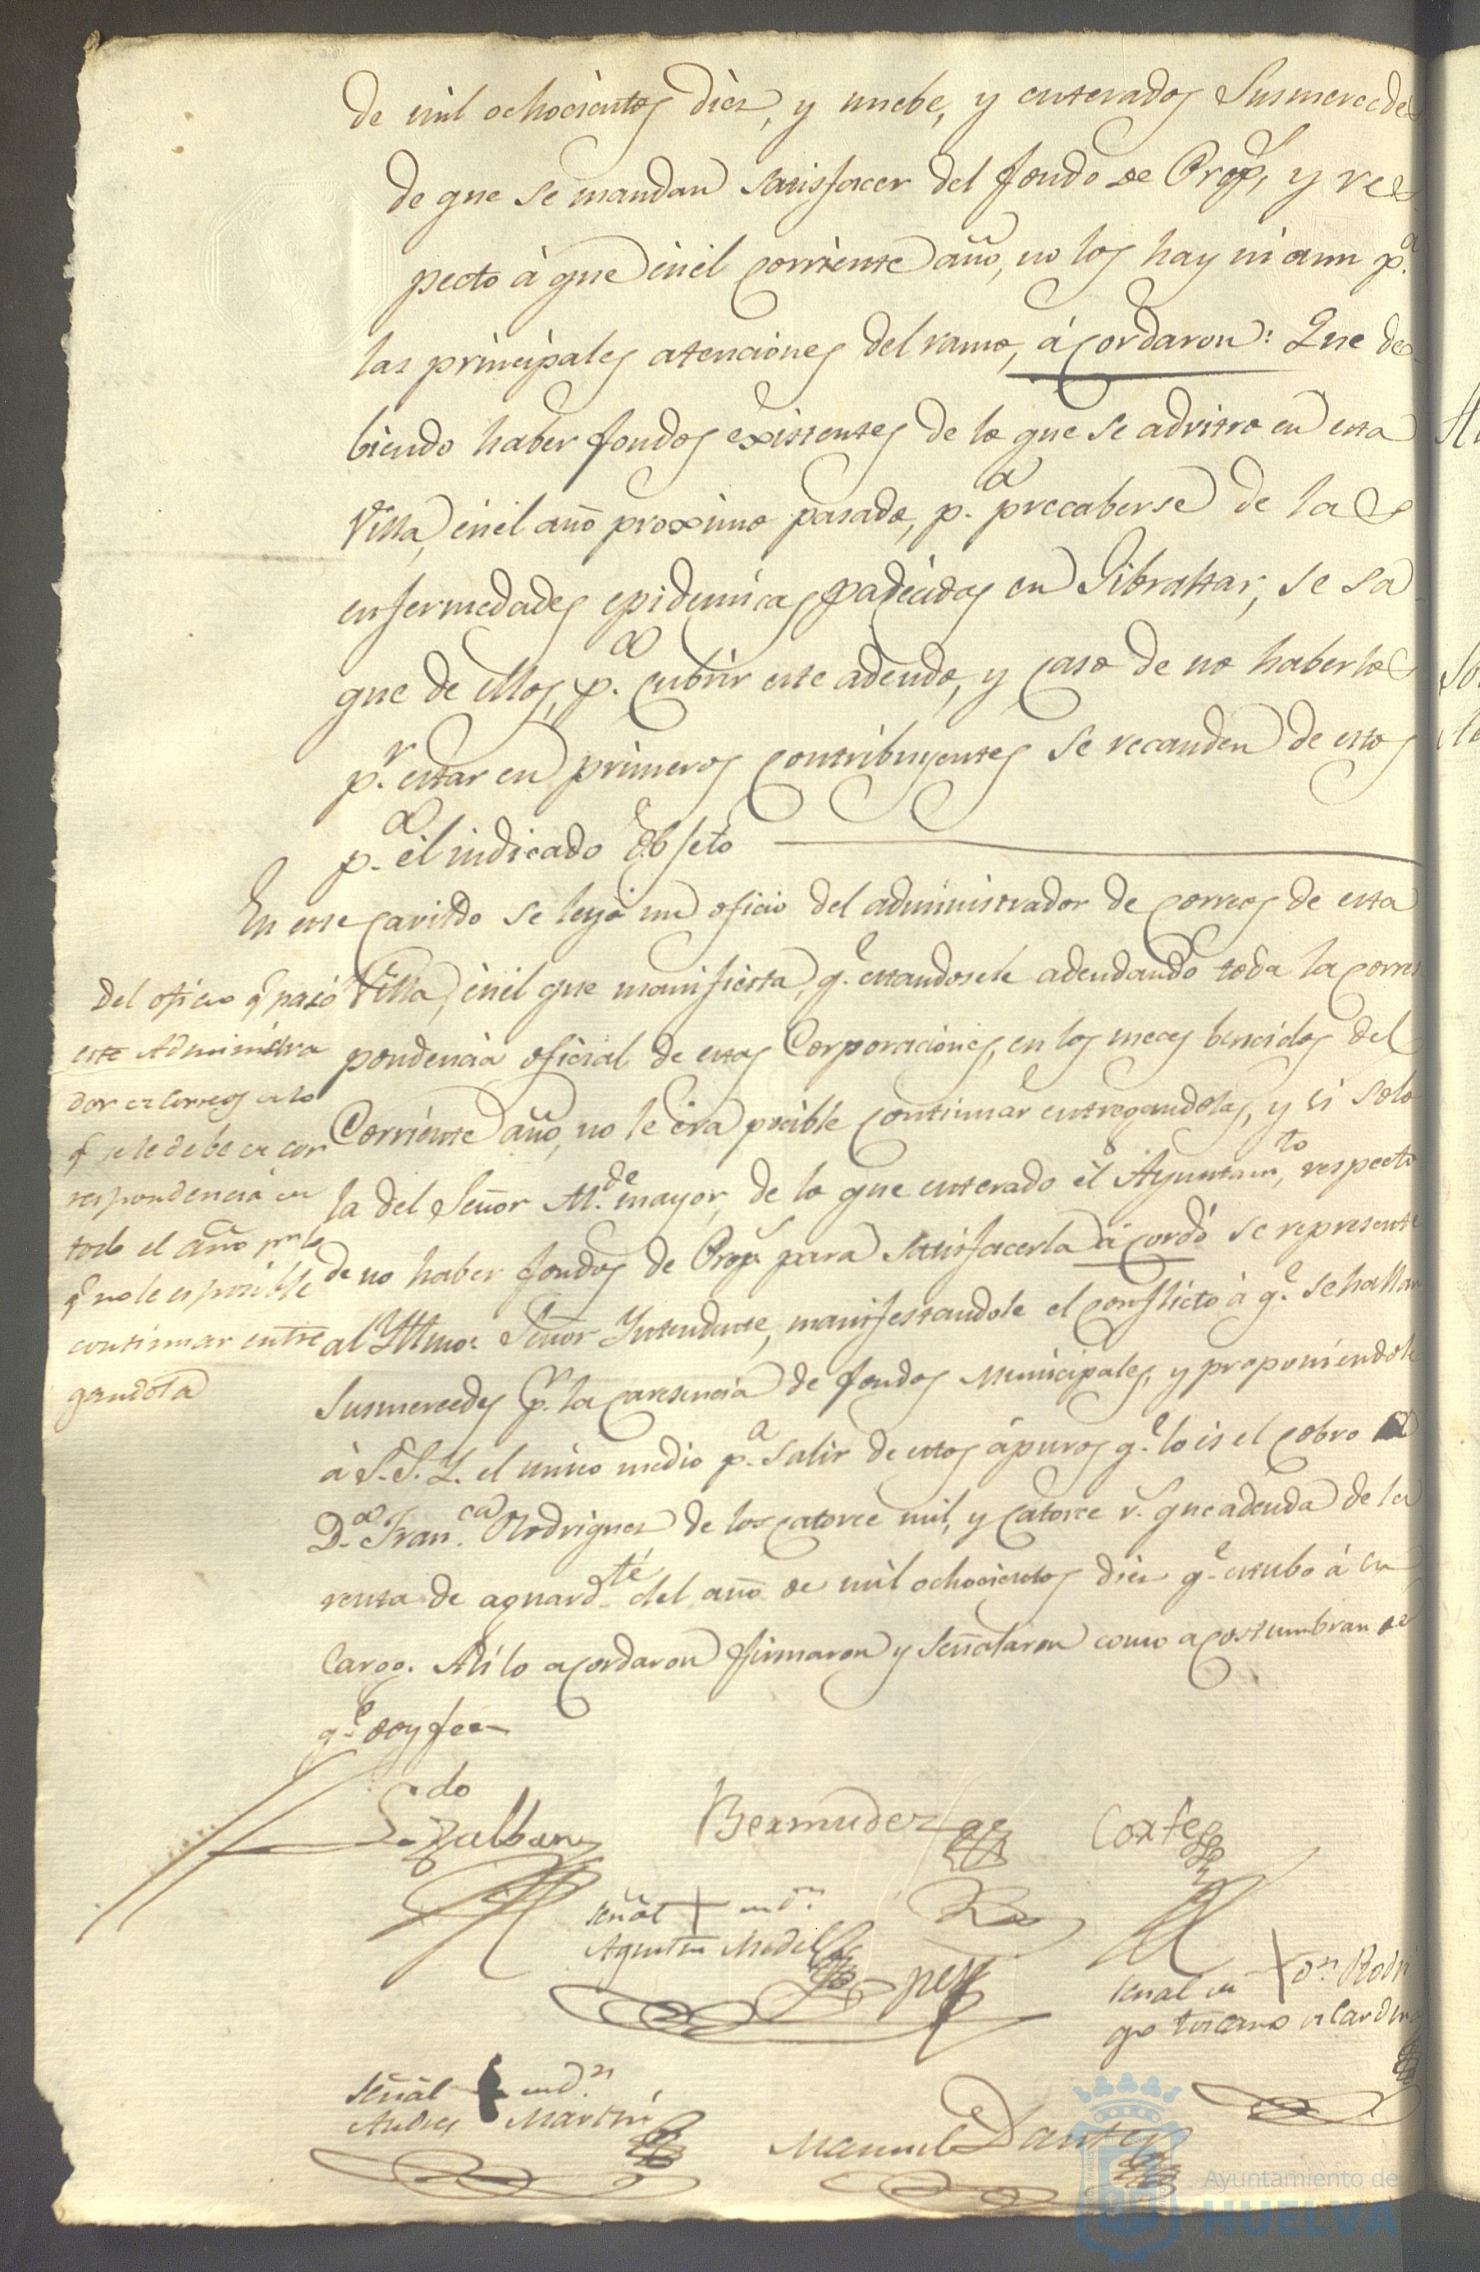 de mil ochocientos diez, y nuebe, y enterados Susmercedes
de que se mandan satisfacer del fondo de Prop.s y res-
pecto á que en el corriente año, no los hay ni aun p.a
las principales atenciones del ramo, ácordaron: Que de-
biendo haber fondos existentes de lo que se advitro en esta
Villa, en el año proximo pasado, p.a precaberse de las
enfermedades epidemicas padecidas en Gibraltar, se sa
que de ellos, p.a cubrir este adeudo, y caso de no haberlos
p.r estar en primeros contribuyentes se recauden de estos
p.a el indicado Objeto
En este cavildo se leyó un oficio del administrador de correos de esta
Villa, en el que manifiesta, q.e estandosele adeudando toda la corres
pondencia oficial de estas Corporaciones, en los meces bencidos del
Corriente año, no le era posible continuar entregandolas, y si solo
la del Señor Al.de mayor, de lo que enterado el Ayuntam.to respecto
de no haber fondos de Prop.s para satisfacerla ácordó se represente
al Yllmo. Señor Yntendente, manifestandole el conflicto á q.e se hallan
Susmercedes p.r la caresencia de fondos Municipales, y proponiendole
á S.S.Y. el unico medio p.a salir de estos ápuros q.e lo es el cobro
D.a Fran.ca Rodriguez de los catorce mil, y catorce r.s que adeuda de la
renta de aguard.te del año de mil ochocientos diez q.e estubo á su
Cargo. Asi lo acordaron firmaron y señalaron como acostumbran de
q.e doy fee
Del oficio q.e pasó
este Administra
dor de Correos de lo
q.e se le debe de cor
respondencia en
todo el año p.r lo
q.e no le es posible
continuar entre
gandola
L.do Zalban
Bermudez
Cortes
señal + de D.n
Agustin Medel
señal de + D.n Rodri
go toscano de Cardenas
señal + de D.n
Andres Martin
Manuel Dantes
Ayuntamiento de
HUELVA